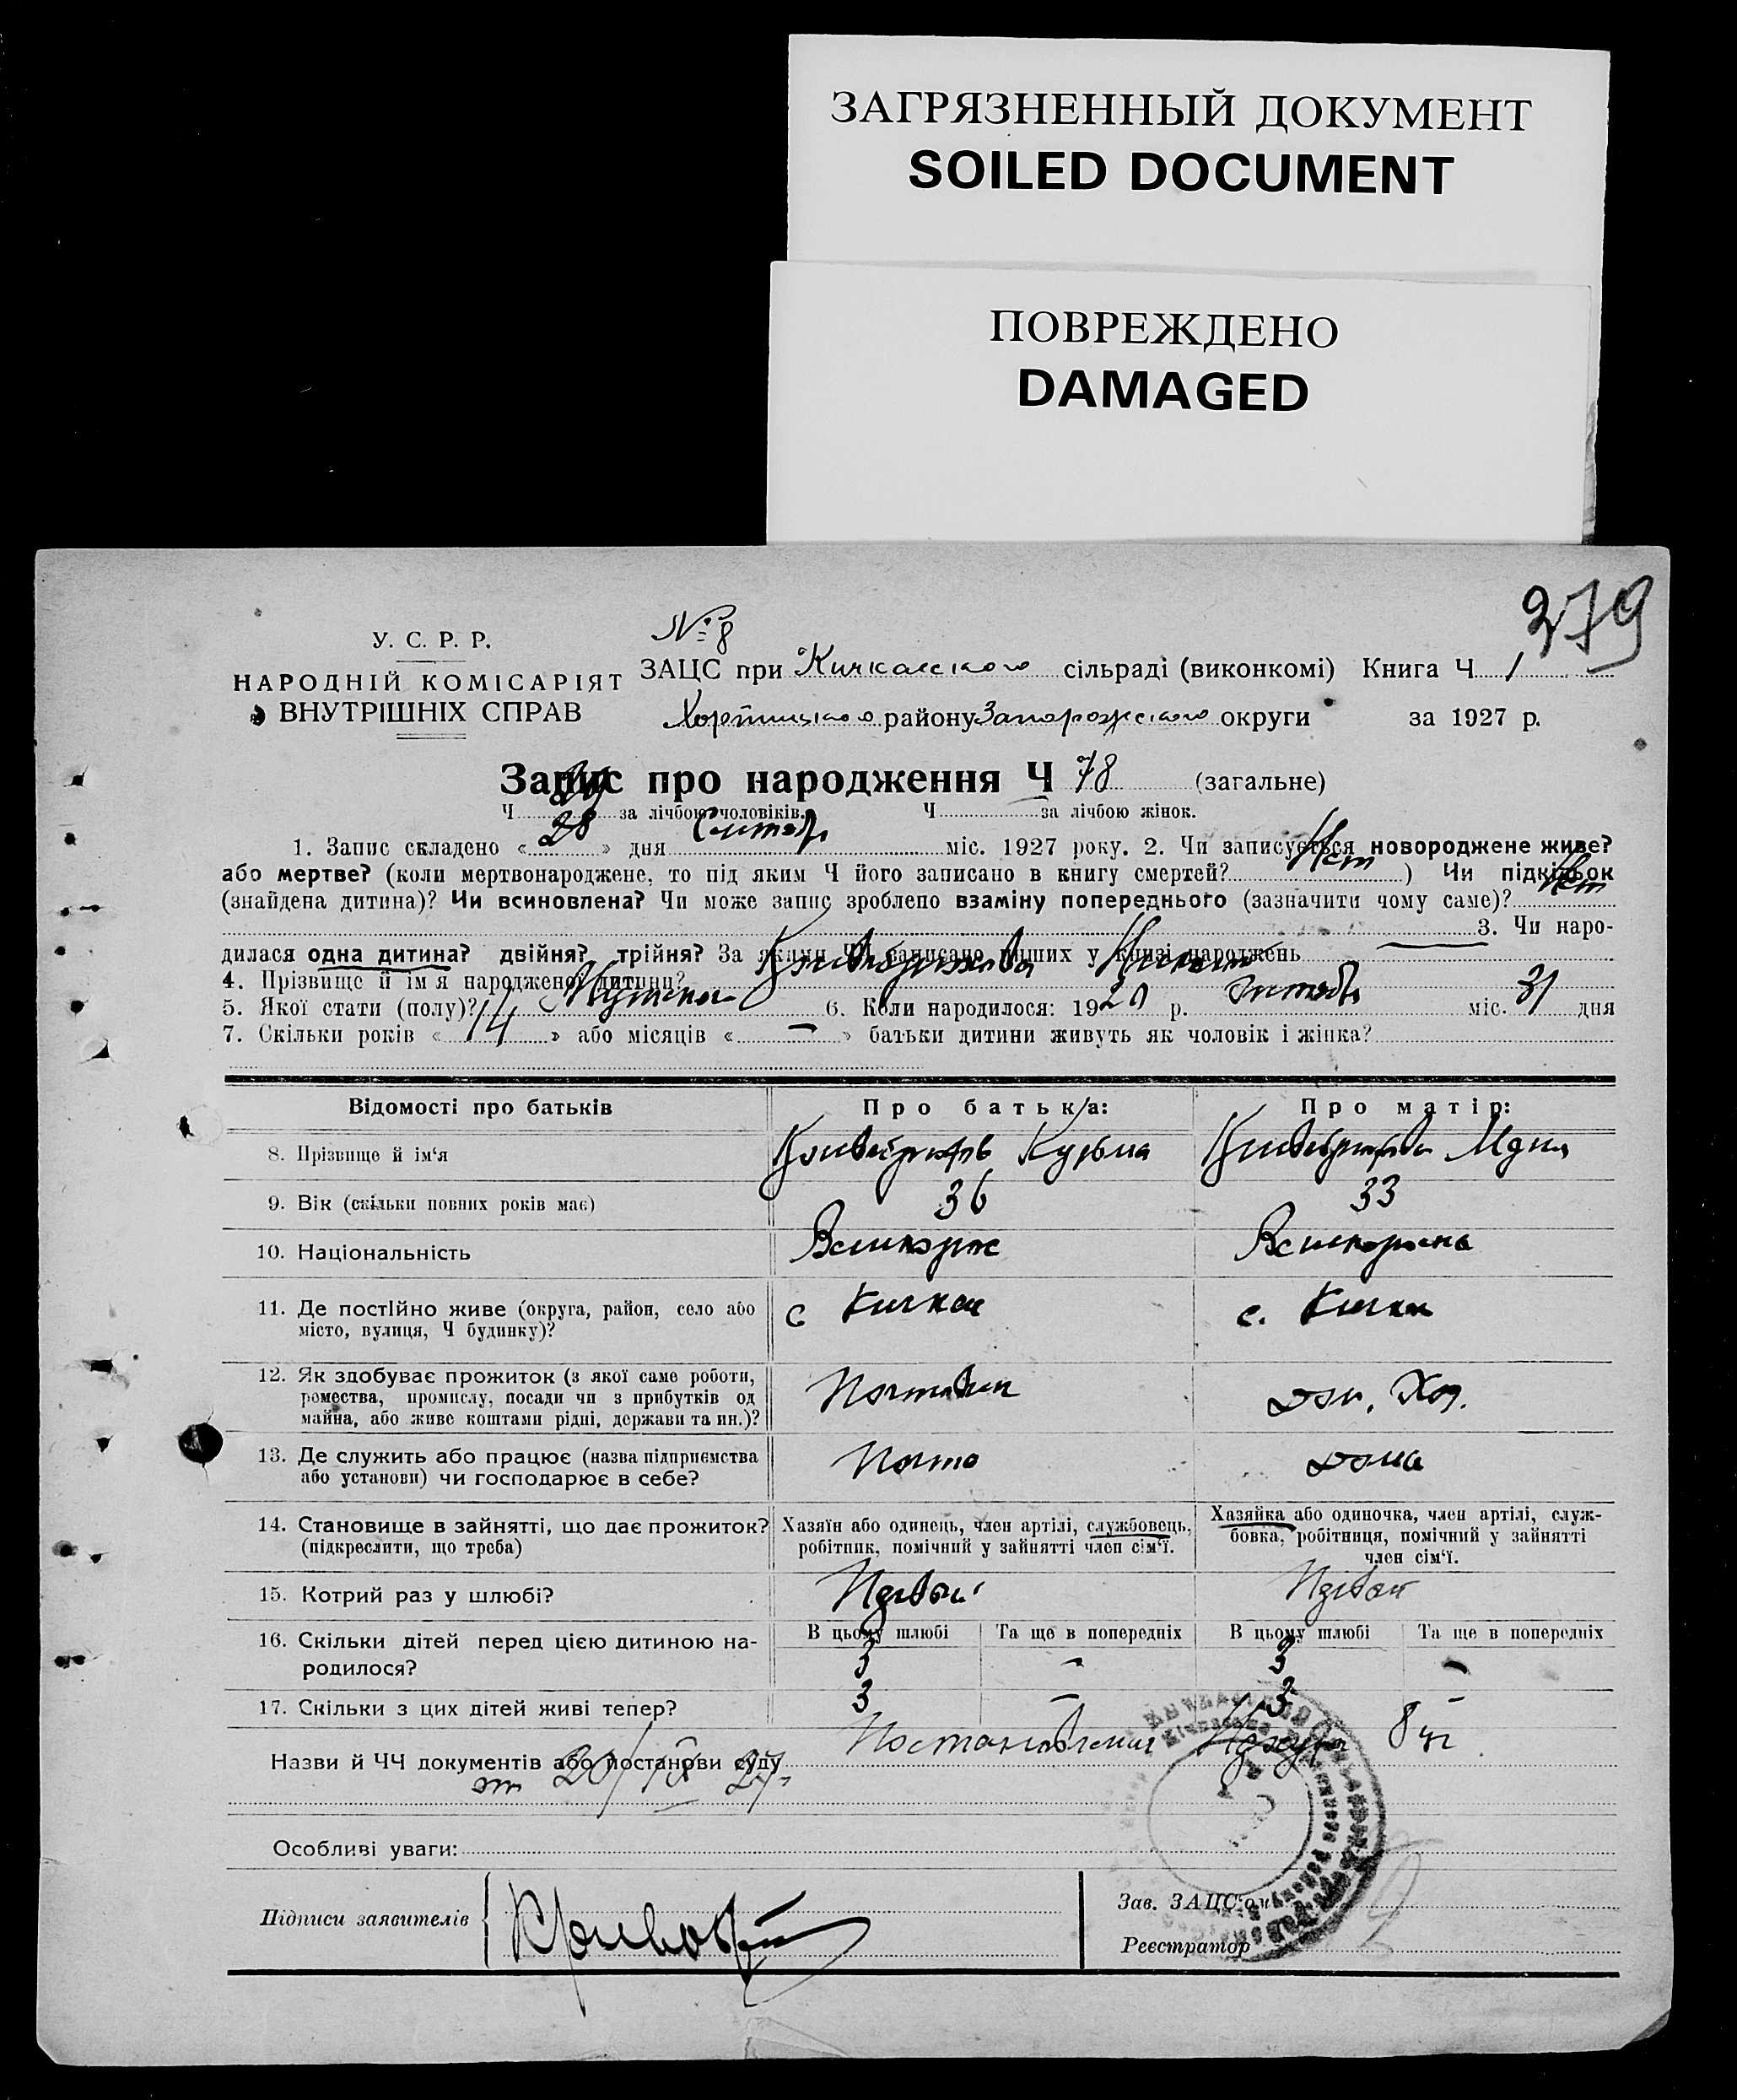 ЗАГРЯЗНЕННЫЙ ДОКУМЕНТ
SOILED DOCUMENT
ПОВРЕЖДЕНО
DAMAGED
379
У. С. Р. Р.
НАРОДНІЙ КОМІСАРІЯТ
ВНУТРІШНІХ СПРАВ
№ 8
ЗАЦС при Кичкасского сільраді (виконкомі) Книга Ч 1
Хортицкого району Запорожского округи за 1927 р.
Запис про народження Ч 78 (загальне)
Ч за лічбою чоловіків. Ч за лічбою жінок.
1. Запис складено « 28 » дня міс. 1927 року. 2. Чи записується новороджене живе?
або мертве? (коли мертвонароджене, то під яким Ч його записано в книгу смертей? Нет ) Чи підкідьок
(знайдена дитина)? Чи всиновлена? Чи може запис зроблено взаміну попереднього (зазначити чому саме)? Нет
3. Чи наро-
дилася одна дитина? двійня? трійня? За якими ЧЧ записано інших у книзі народжень
4. Прізвище й ім'я народженої дитини?
5. Якої стати (полу)? Мужской 6. Коли народилося: 19 р. міс. 31 дня
7. Скільки років « 14 » або місяців « — » батьки дитини живуть як чоловік і жінка?
Відомості про батьків Про батька: Про матір:
8. Прізвище й ім'я Кузьма
9. Вік (скільки повних років має) 36 33
10. Національність Великорос
11. Де постійно живе (округа, район, село або с Кичкас с. Кичкас
місто, вулиця, Ч будинку)?
12. Як здобуває прожиток (з якої саме роботи, Почтальон Дом. Хоз.
ремества, промислу, посади чи з прибутків од
майна, або живе коштами рідні, держави та ин.)?
13. Де служить або працює (назва підприємства Почта Дома
або установи) чи господарює в себе?
14. Становище в зайнятті, що дає прожиток? Хазяїн або одинець, член артілі, службовець, Хазяйка або одиночка, член артілі, служ-
(підкреслити, що треба) робітник, помічний у зайнятті член сім'ї. бовка, робітниця, помічний у зайнятті
член сім'ї.
15. Котрий раз у шлюбі? Первый Первый
16. Скільки дітей перед цією дитиною на- В цьому шлюбі Та ще в попередніх В цьому шлюбі Та ще в попередніх
родилося? 3 - 3 -
17. Скільки з цих дітей живі тепер? 3 - 3 -
Назви й ЧЧ документів або постанови суду Постановление
от 20/IX 27
Особливі уваги:
Підписи заявителів
Зав. ЗАЦС'ом
Реєстратор